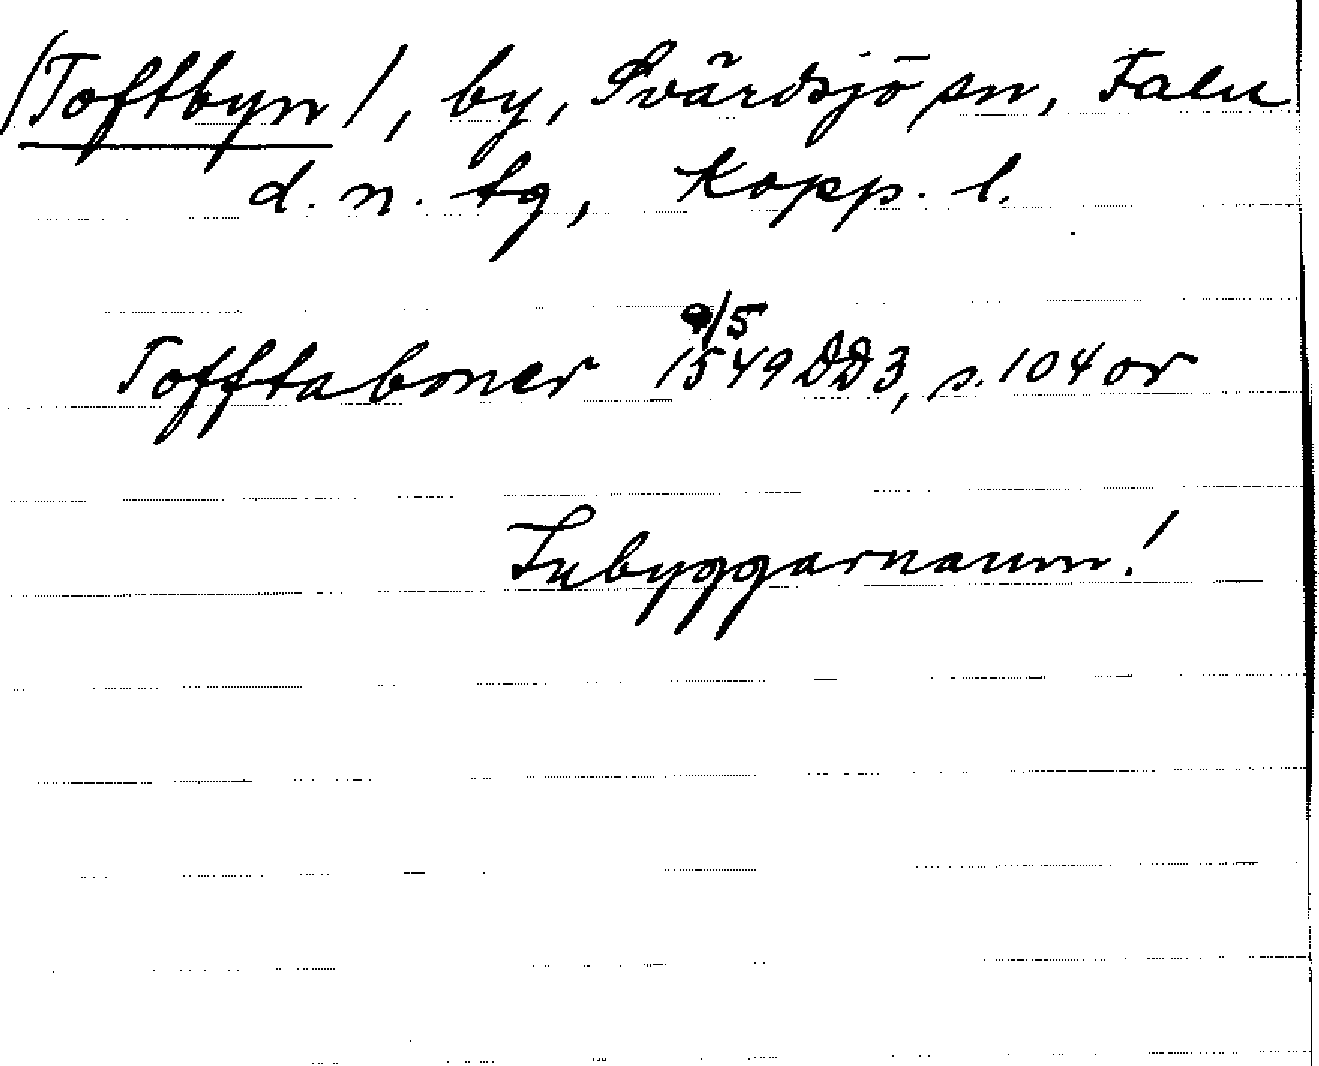 /Toftbyn/, by, Svärdsjö sn, Falu
d. n. tg, Kopp. l.
9/5
Tofftaboner 1549 DD3, s. 104 or
Inbyggarnamn!